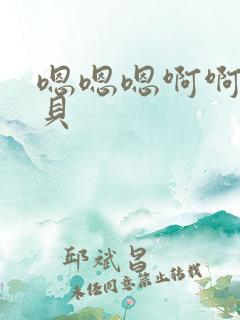 嗯嗯嗯啊啊
頁
邱斌昌
未经同意禁止转载